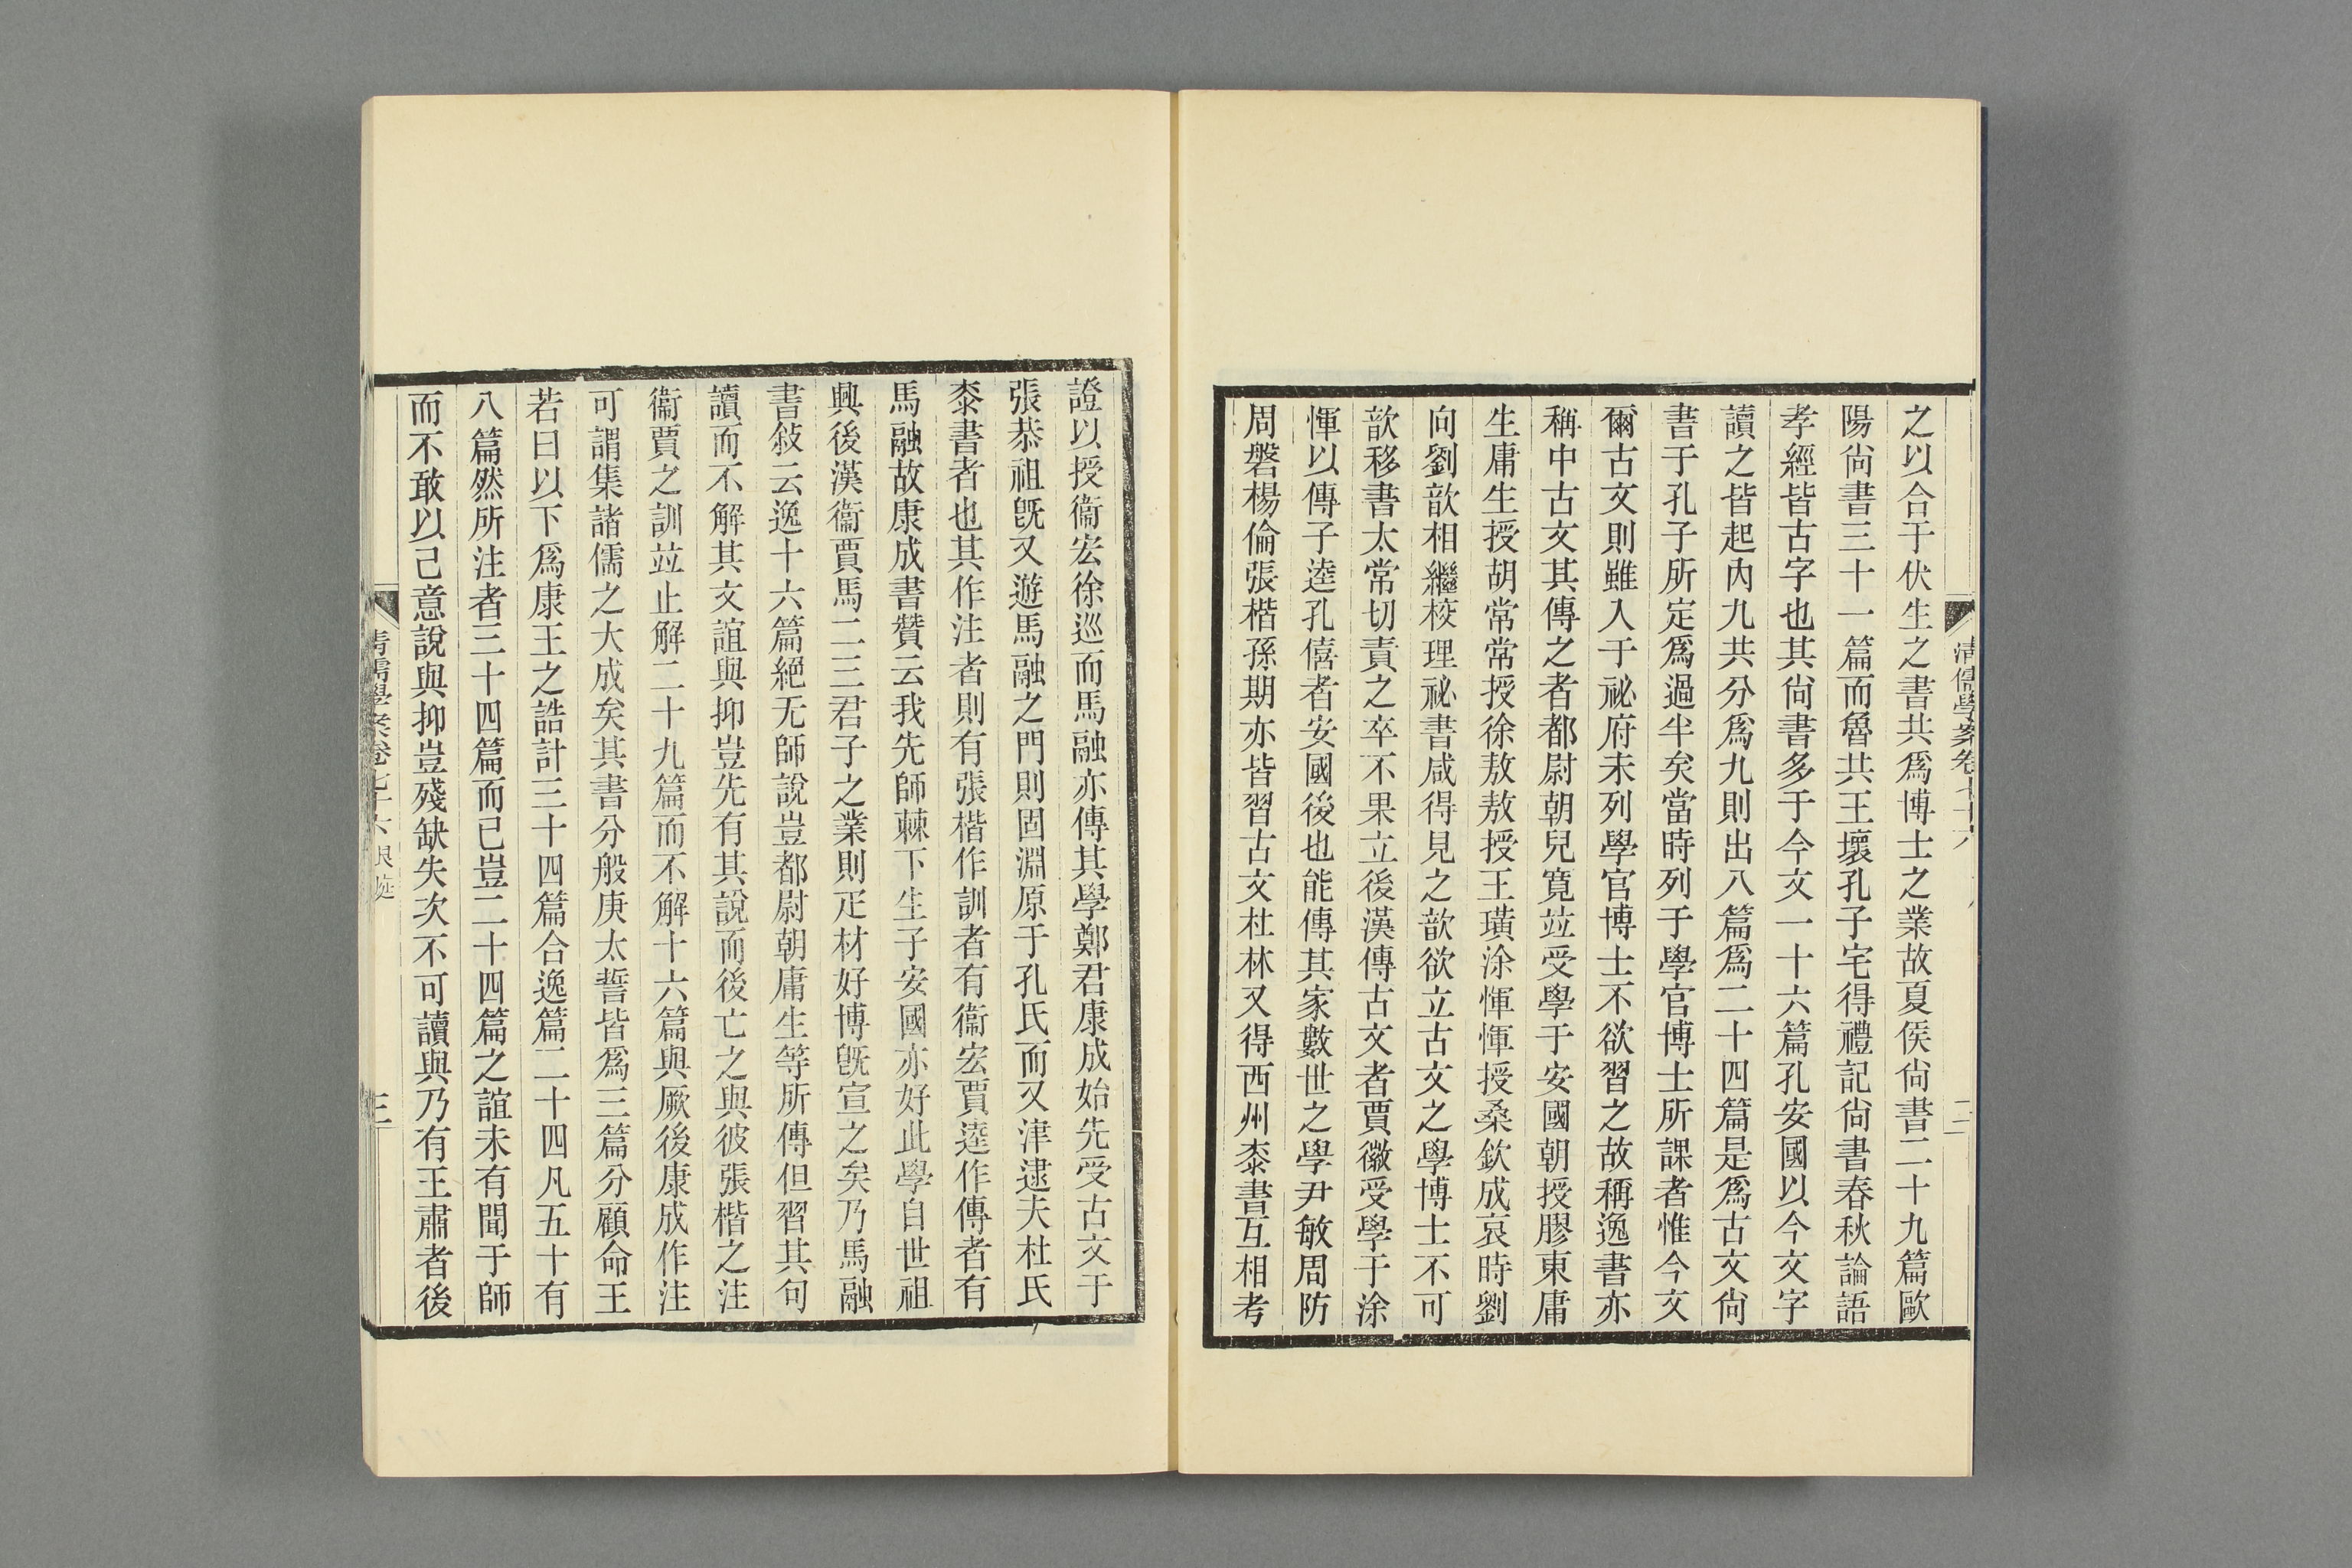 清儒學案卷七十六
二
之以合于伏生之書共爲博士之業故夏侯尙書二十九篇歐
陽尙書三十一篇而魯共王壞孔子宅得禮記尙書春秋論語
孝經皆古字也其尙書多于今文一十六篇孔安國以今文字
讀之皆起內九共分爲九則出八篇爲二十四篇是爲古文尙
書于孔子所定爲過半矣當時列于學官博士所課者惟今文
爾古文則雖入于祕府未列學官博士不欲習之故稱逸書亦
稱中古文其傳之者都尉朝兒寬竝受學于安國朝授膠東庸
生庸生授胡常常授徐敖敖授王璜涂惲惲授桑欽成哀時劉
向劉歆相繼校理祕書咸得見之歆欲立古文之學博士不可
歆移書太常切責之卒不果立後漢傳古文者賈徽受學于涂
惲以傳子逵孔僖者安國後也能傳其家數世之學尹敏周防
周磐楊倫張楷孫期亦皆習古文杜林又得西州桼書互相考
證以授衞宏徐巡而馬融亦傳其學鄭君康成始先受古文于
張恭祖旣又遊馬融之門則固淵原于孔氏而又津逮夫杜氏
桼書者也其作注者則有張楷作訓者有衞宏賈逵作傳者有
馬融故康成書贊云我先師棘下生子安國亦好此學自世祖
興後漢衞賈馬二三君子之業則疋材好博旣宣之矣乃馬融
書敍云逸十六篇絕无師說豈都尉朝庸生等所傳但習其句
讀而不解其文誼與抑豈先有其說而後亡之與彼張楷之注
衞賈之訓竝止解二十九篇而不解十六篇與厥後康成作注
可謂集諸儒之大成矣其書分般庚太誓皆爲三篇分顧命王
若曰以下爲康王之誥計三十四篇合逸篇二十四凡五十有
八篇然所注者三十四篇而已豈二十四篇之誼未有聞于師
而不敢以己意說與抑豈殘缺失次不可讀與乃有王肅者後
清儒學案卷七十六 艮庭
三